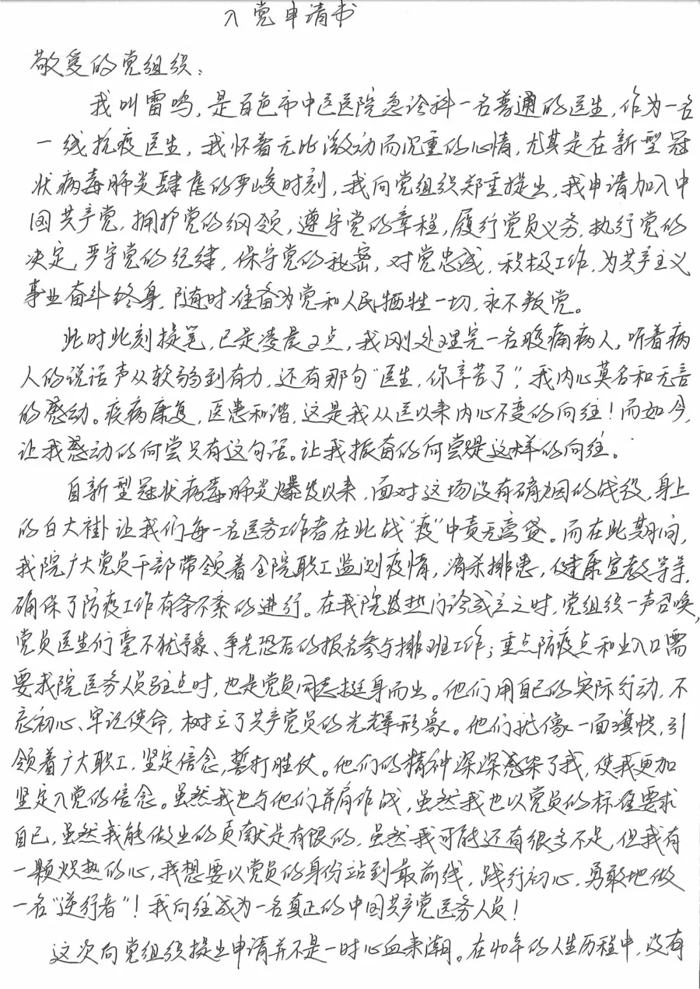 入党申请书
敬爱的党组织：
我叫雷鸣，是百色市中医医院急诊科一名普通的医生，作为一名
一线抗疫医生，我怀着无比激动而沉重的心情，尤其是在新型冠
状病毒肺炎肆虐的严峻时刻，我向党组织郑重提出，我申请加入中
国共产党，拥护党的纲领，遵守党的章程，履行党员义务，执行党的
决定，严守党的纪律，保守党的秘密，对党忠诚，积极工作，为共产主义
事业奋斗终身，随时准备为党和人民牺牲一切，永不叛党。
此时此刻提笔，已是凌晨2点，我刚处理完一名腹痛病人，听着病
人的说话声从软弱到有力，还有那句“医生，你辛苦了”，我内心莫名和无言
的感动。疾病康复，医患和谐，这是我从医以来内心不变的向往！而如今，
让我感动的何尝只有这句话。让我振奋的何尝是这样的向往。
自新型冠状病毒肺炎爆发以来，面对这场没有硝烟的战役，身上
的白大褂让我们每一名医务工作者在此战“疫”中责无旁贷。而在此期间，
我院广大党员干部带领着全院职工监测疫情，消杀排患，健康宣教等等，
确保了防疫工作有条不紊的进行。在我院发热门诊成立之时，党组织一声召唤，
党员医生们毫不犹豫、争先恐后的报名参与排班工作；重点防疫点和出入口需
要我院医务人员驻点时，也是党员同志挺身而出。他们用自己的实际行动，不
忘初心、牢记使命，树立了共产党员的光辉形象。他们就像一面旗帜，引
领着广大职工，坚定信念，誓打胜仗。他们的精神深深感染了我，使我更加
坚定入党的信念。虽然我也与他们并肩作战，虽然我也以党员的标准要求
自己，虽然我能做出的贡献是有限的，虽然我可能还有很多不足，但我有
一颗炽热的心，我想要以党员的身份站到最前线，践行初心，勇敢地做
一名“逆行者”！我向往成为一名真正的中国共产党医务人员！
这次向党组织提出申请并不是一时心血来潮。在40年的人生历程中，没有